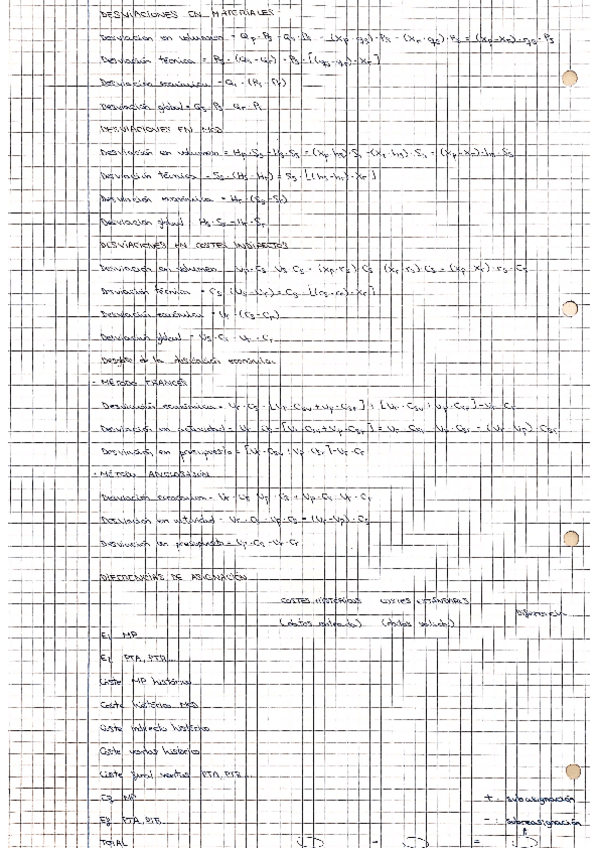 DESVIACIONES EN MATERIALES
Desviación en volumen = Qp · Ps - Qs · Ps = (Xp · qs) · Ps - (Xr · qs) · Ps = (Xp - Xr) · qs · Ps
Desviación técnica = Ps · (Qs - Qr) = Ps · [(qs - qr) · Xr]
Desviación económica = Qr · (Ps - Pr)
Desviación global = Qs · Ps - Qr · Pr
DESVIACIONES EN MOD
Desviación en volumen = Hp · Ss - Hs · Ss = (Xp · hs) · Ss - (Xr · hs) · Ss = (Xp - Xr) · hs · Ss
Desviación técnica = Ss · (Hs - Hr) = Ss · [(hs - hr) · Xr]
Desviación económica = Hr · (Ss - Sr)
Desviación global = Hs · Ss - Hr · Sr
DESVIACIONES EN COSTES INDIRECTOS
Desviación en volumen = Up · Cs - Us · Cs = (Xp · rs) · Cs - (Xr · rs) · Cs = (Xp - Xr) · rs · Cs
Desviación técnica = Cs · (Us - Ur) = Cs · [(rs - rr) · Xr]
Desviación económica = Ur · (Cs - Cr)
Desviación global = Us · Cs - Ur · Cr
Desglose de la desviación económica
- MÉTODO FRANCÉS
Desviación económica = Ur · Cs - [Ur · Csv + Up · Csf] + [Ur · Csv + Up · Csf] - Ur · Cr
Desviación en actividad = Ur · Cs - [Ur · Csv + Up · Csf] = Ur · Csf - Up · Csf = (Ur - Up) · Csf
Desviación en presupuesto = [Ur · Csv + Up · Csf] - Ur · Cr
- MÉTODO ANGLOSAJÓN
Desviación económica = Ur · Cs - Up · Cs + Up · Cs - Ur · Cr
Desviación en actividad = Ur · Cs - Up · Cs = (Ur - Up) · Cs
Desviación en presupuesto = Up · Cs - Ur · Cr
DIFERENCIAS DE ASIGNACIÓN
COSTES HISTÓRICOS COSTES ESTÁNDARES Diferencia
Ei MP
Ei PTA, PTR...
Coste MP histórico
Coste histórico MOD
Coste indirecto histórico
Coste ventas histórico
Coste final ventas PTA, PTR...
Ef MP
+ : subasignación
Ef PTA, PTR
- : sobreasignación
TOTAL - =